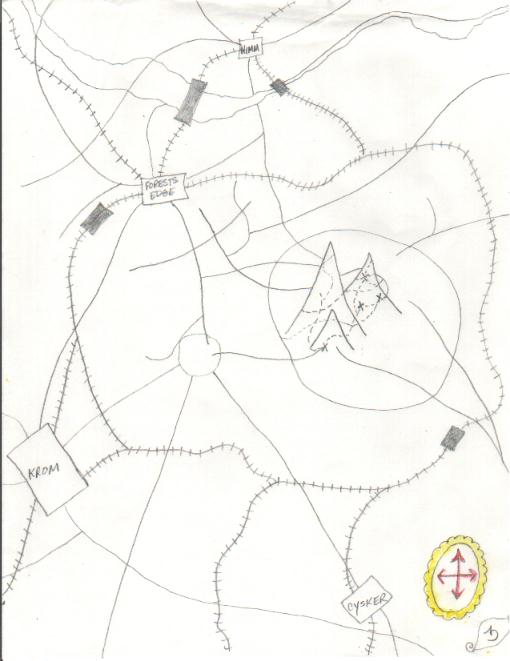 FORESTS
EDGE
KROM
CYSKER